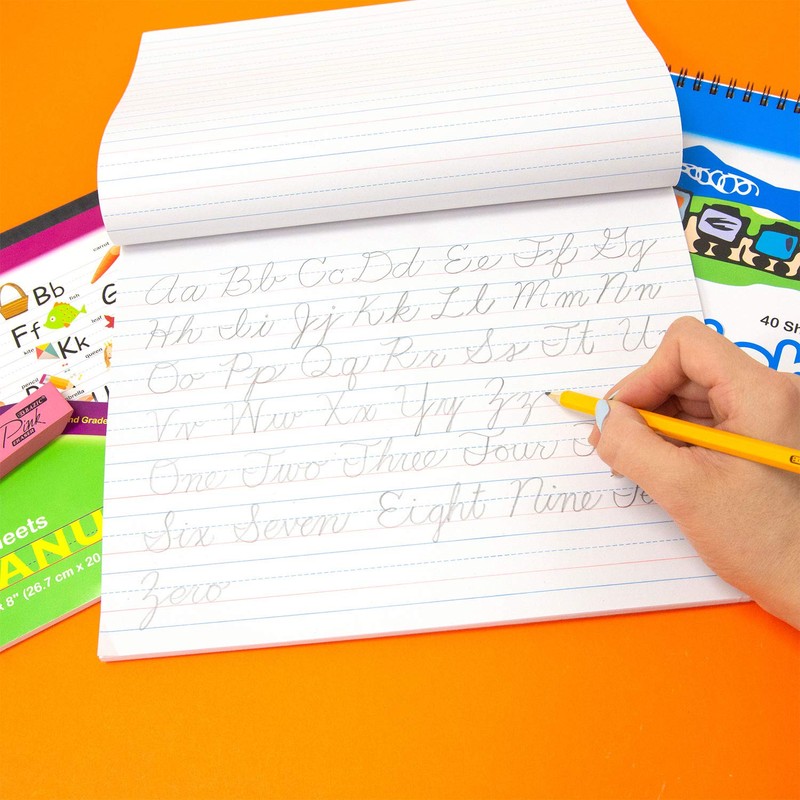 Aa Bb Cc Dd Ee Ff Gg
Hh Ii Jj Kk Ll Mm Nn
Oo Pp Qq Rr Ss Tt U
Vv Ww Xx Yy Zz
One Two Three Four F
Six Seven Eight Nine Te
Zero
carrot
Bb
fish
Ff
G
leaf
kite
Kk
queen
pencil
Pink
nd Grade
eets
ANU
8" (26.7 cm x 20
40 Sh